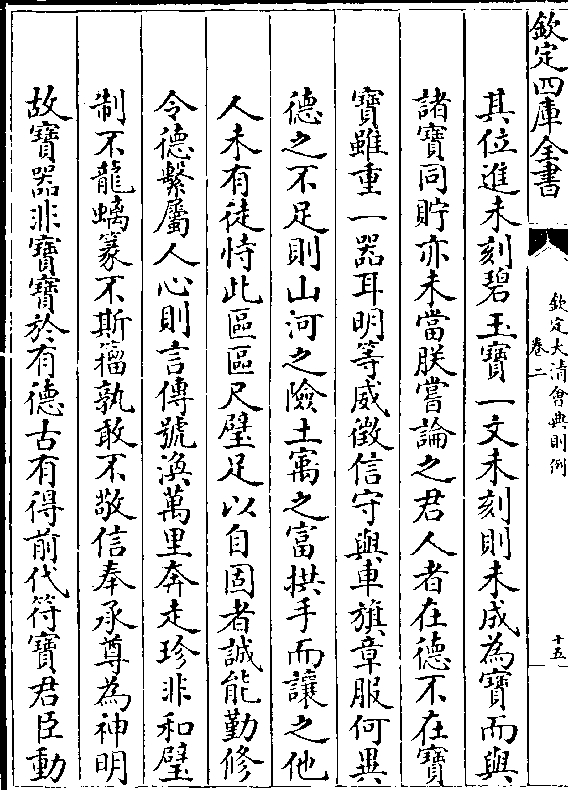 欽定四庫全書
欽定大清會典則例
卷二
十五
其位進未刻碧玉寶一文未刻則未成為寶而與
諸寶同貯亦未當朕嘗論之君人者在德不在寶
寶雖重一器耳明等威徵信守與車旗章服何異
德之不足則山河之險土㝢之富拱手而讓之他
人未有徒恃此區區尺璧足以自固者誠能勤修
令德繫屬人心則言傳號渙萬里奔走珍非和璧
制不龍螭篆不斯籀孰敢不敬信奉承尊為神明
故寶器非寶寶於有德古有得前代符寶君臣動